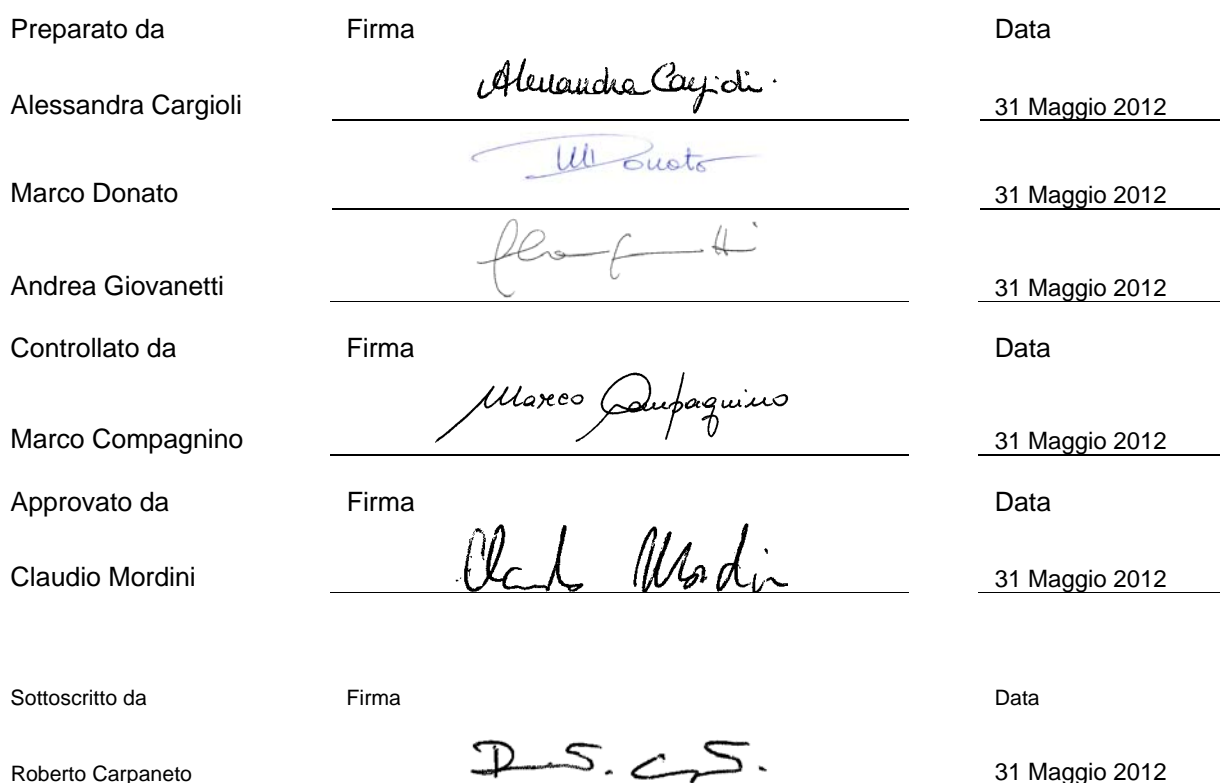 Preparato da Firma Data
Alessandra Cargioli Alessandra Cargioli 31 Maggio 2012
Marco Donato MDonato 31 Maggio 2012
Andrea Giovanetti 31 Maggio 2012
Controllato da Firma Data
Marco Compagnino Marco Compagnino 31 Maggio 2012
Approvato da Firma Data
Claudio Mordini Claudio Mordini 31 Maggio 2012
Sottoscritto da Firma Data
Roberto Carpaneto 31 Maggio 2012